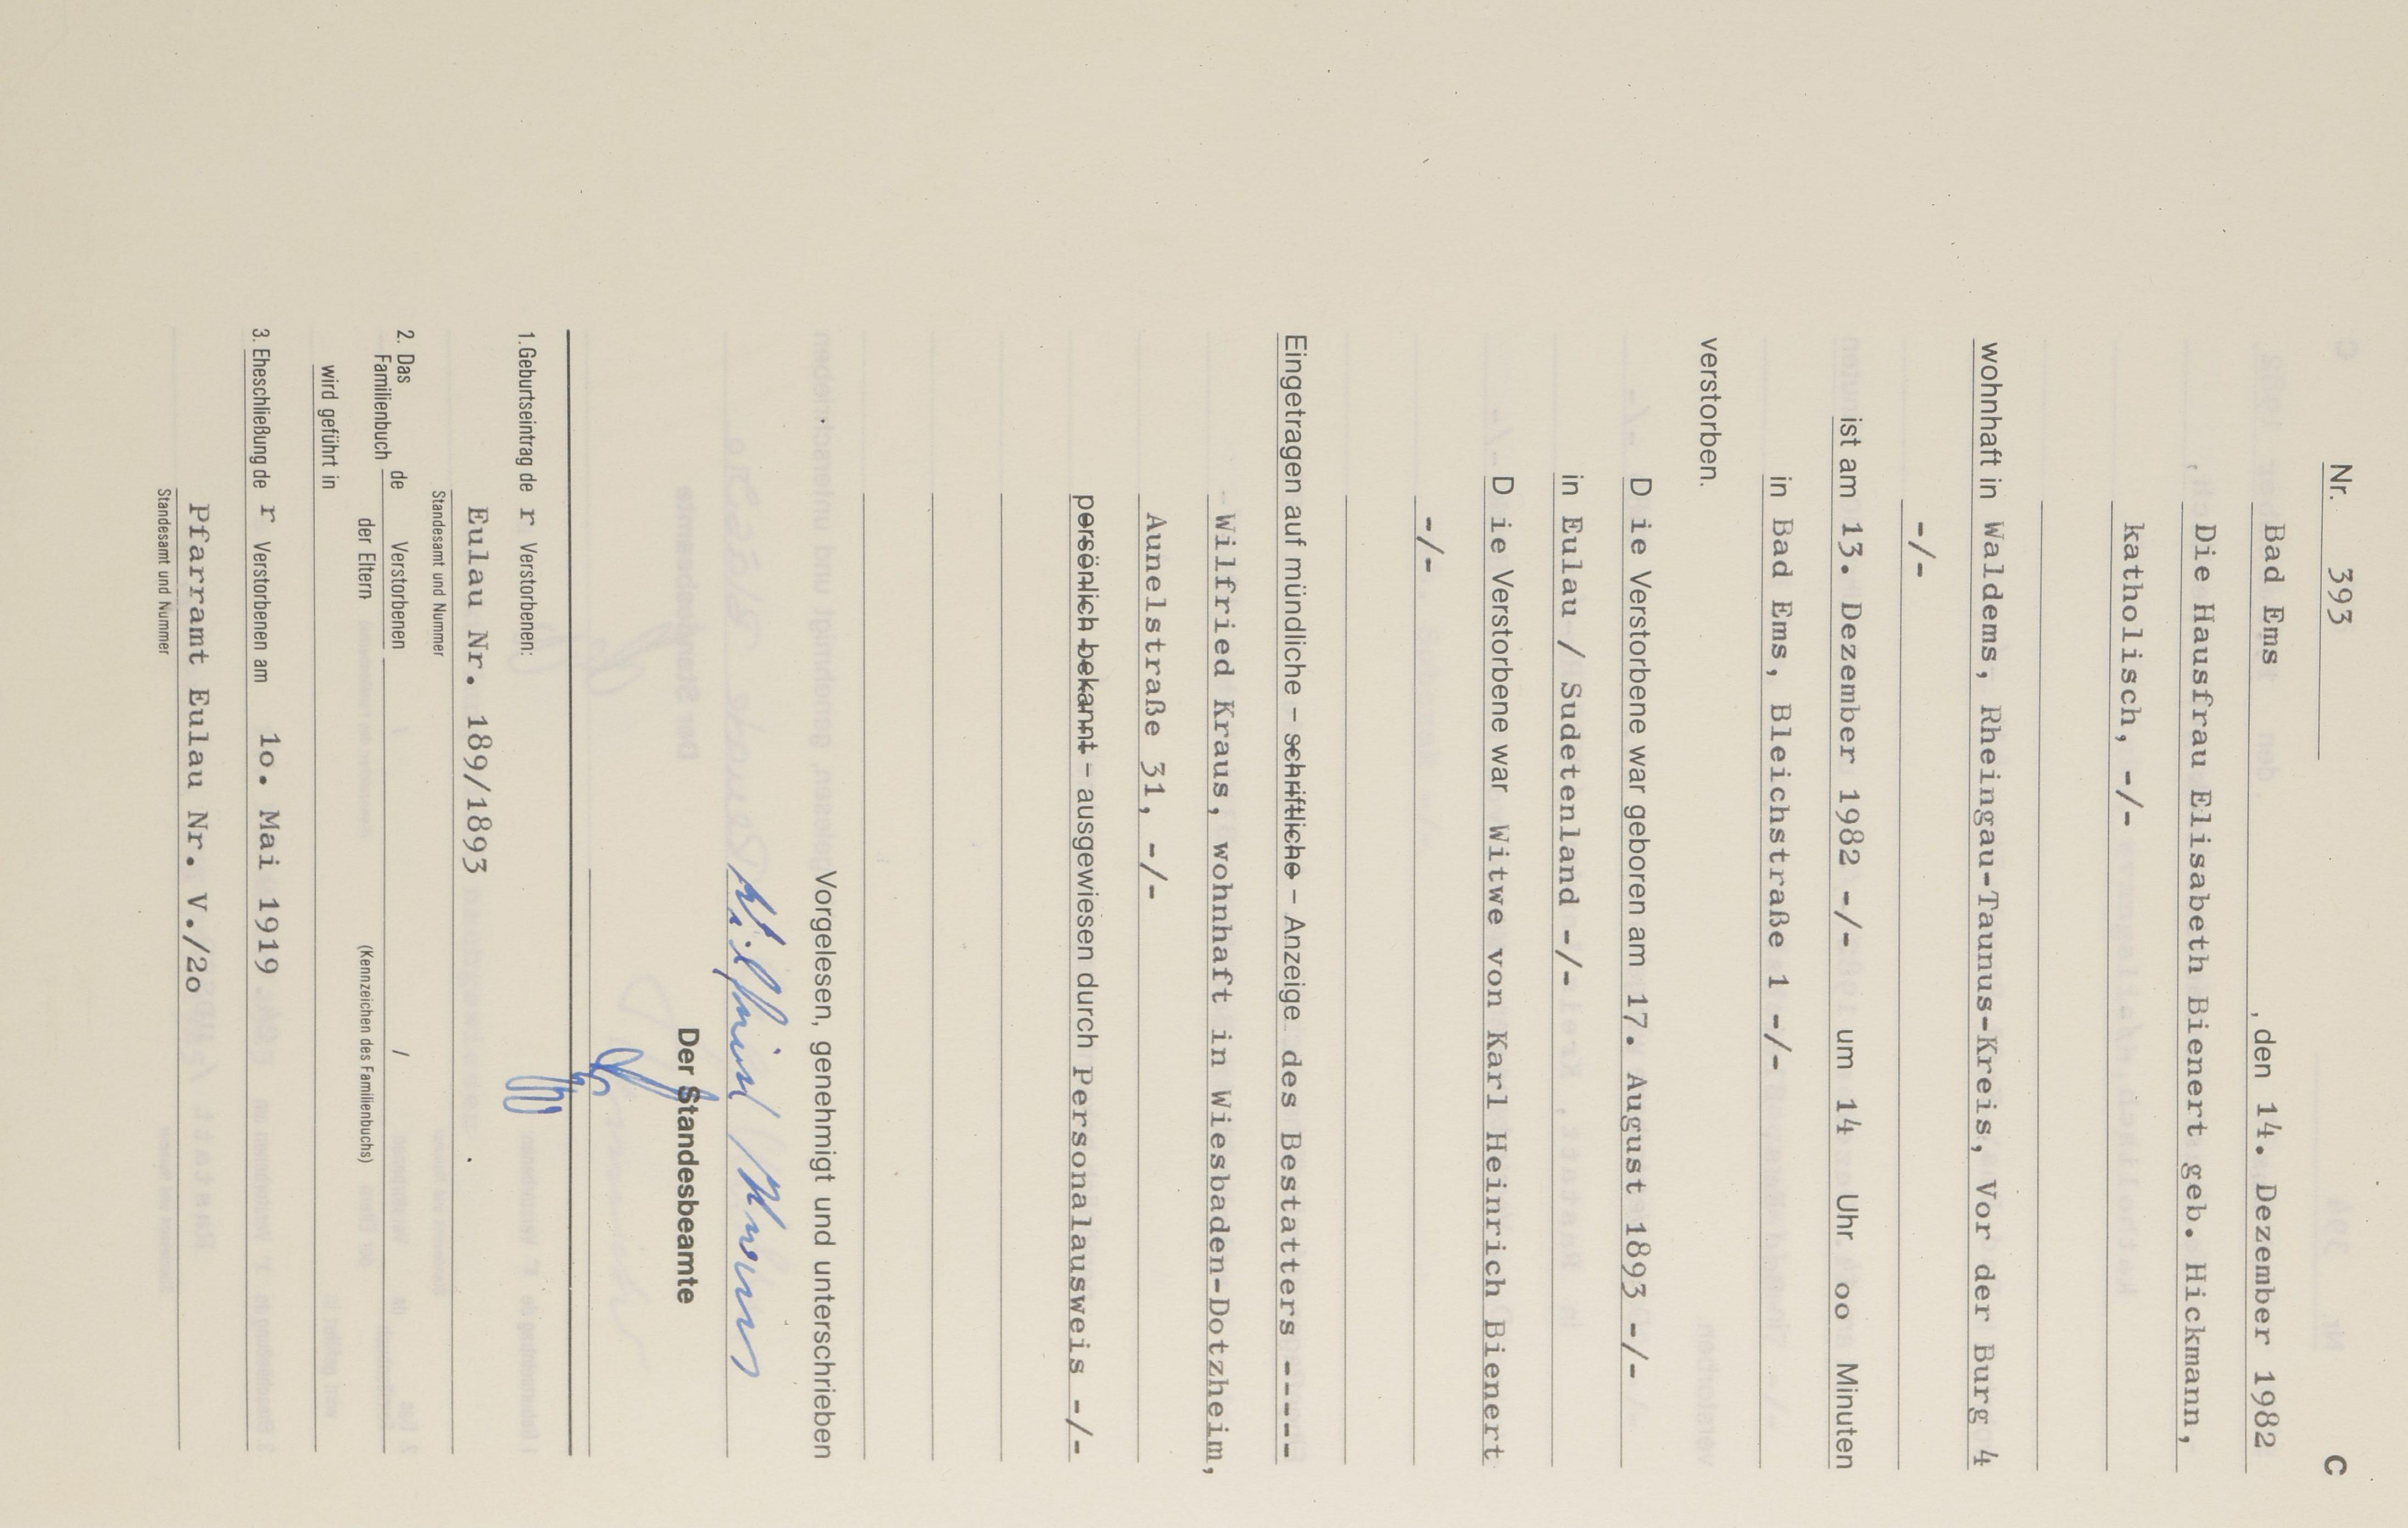 C
Nr. 393
Bad Ems, den 14. Dezember 1982
Die Hausfrau Elisabeth Bienert geb. Hickmann,
katholisch, -/-
wohnhaft in Waldems, Rheingau-Taunus-Kreis, Vor der Burg 4
-/-
ist am 13. Dezember 1982 -/- um 14 Uhr oo Minuten
in Bad Ems, Bleichstraße 1 -/-
verstorben.
D ie Verstorbene war geboren am 17. August 1893 -/-
in Eulau / Sudetenland -/-
D ie Verstorbene war Witwe von Karl Heinrich Bienert
-/-
Eingetragen auf mündliche – schriftliche – Anzeige des Bestatters -----
Wilfried Kraus, wohnhaft in Wiesbaden-Dotzheim,
Aunelstraße 31, -/-
persönlich bekannt – ausgewiesen durch Personalausweis -/-
Vorgelesen, genehmigt und unterschrieben
Wilfried Kraus
Der Standesbeamte
1. Geburtseintrag de r Verstorbenen:
Eulau Nr. 189/1893
Standesamt und Nummer
2. Das Familienbuch de Verstorbenen /
der Eltern (Kennzeichen des Familienbuchs)
wird geführt in
3. Eheschließung de r Verstorbenen am 1o. Mai 1919
Pfarramt Eulau Nr. V./2o
Standesamt und Nummer